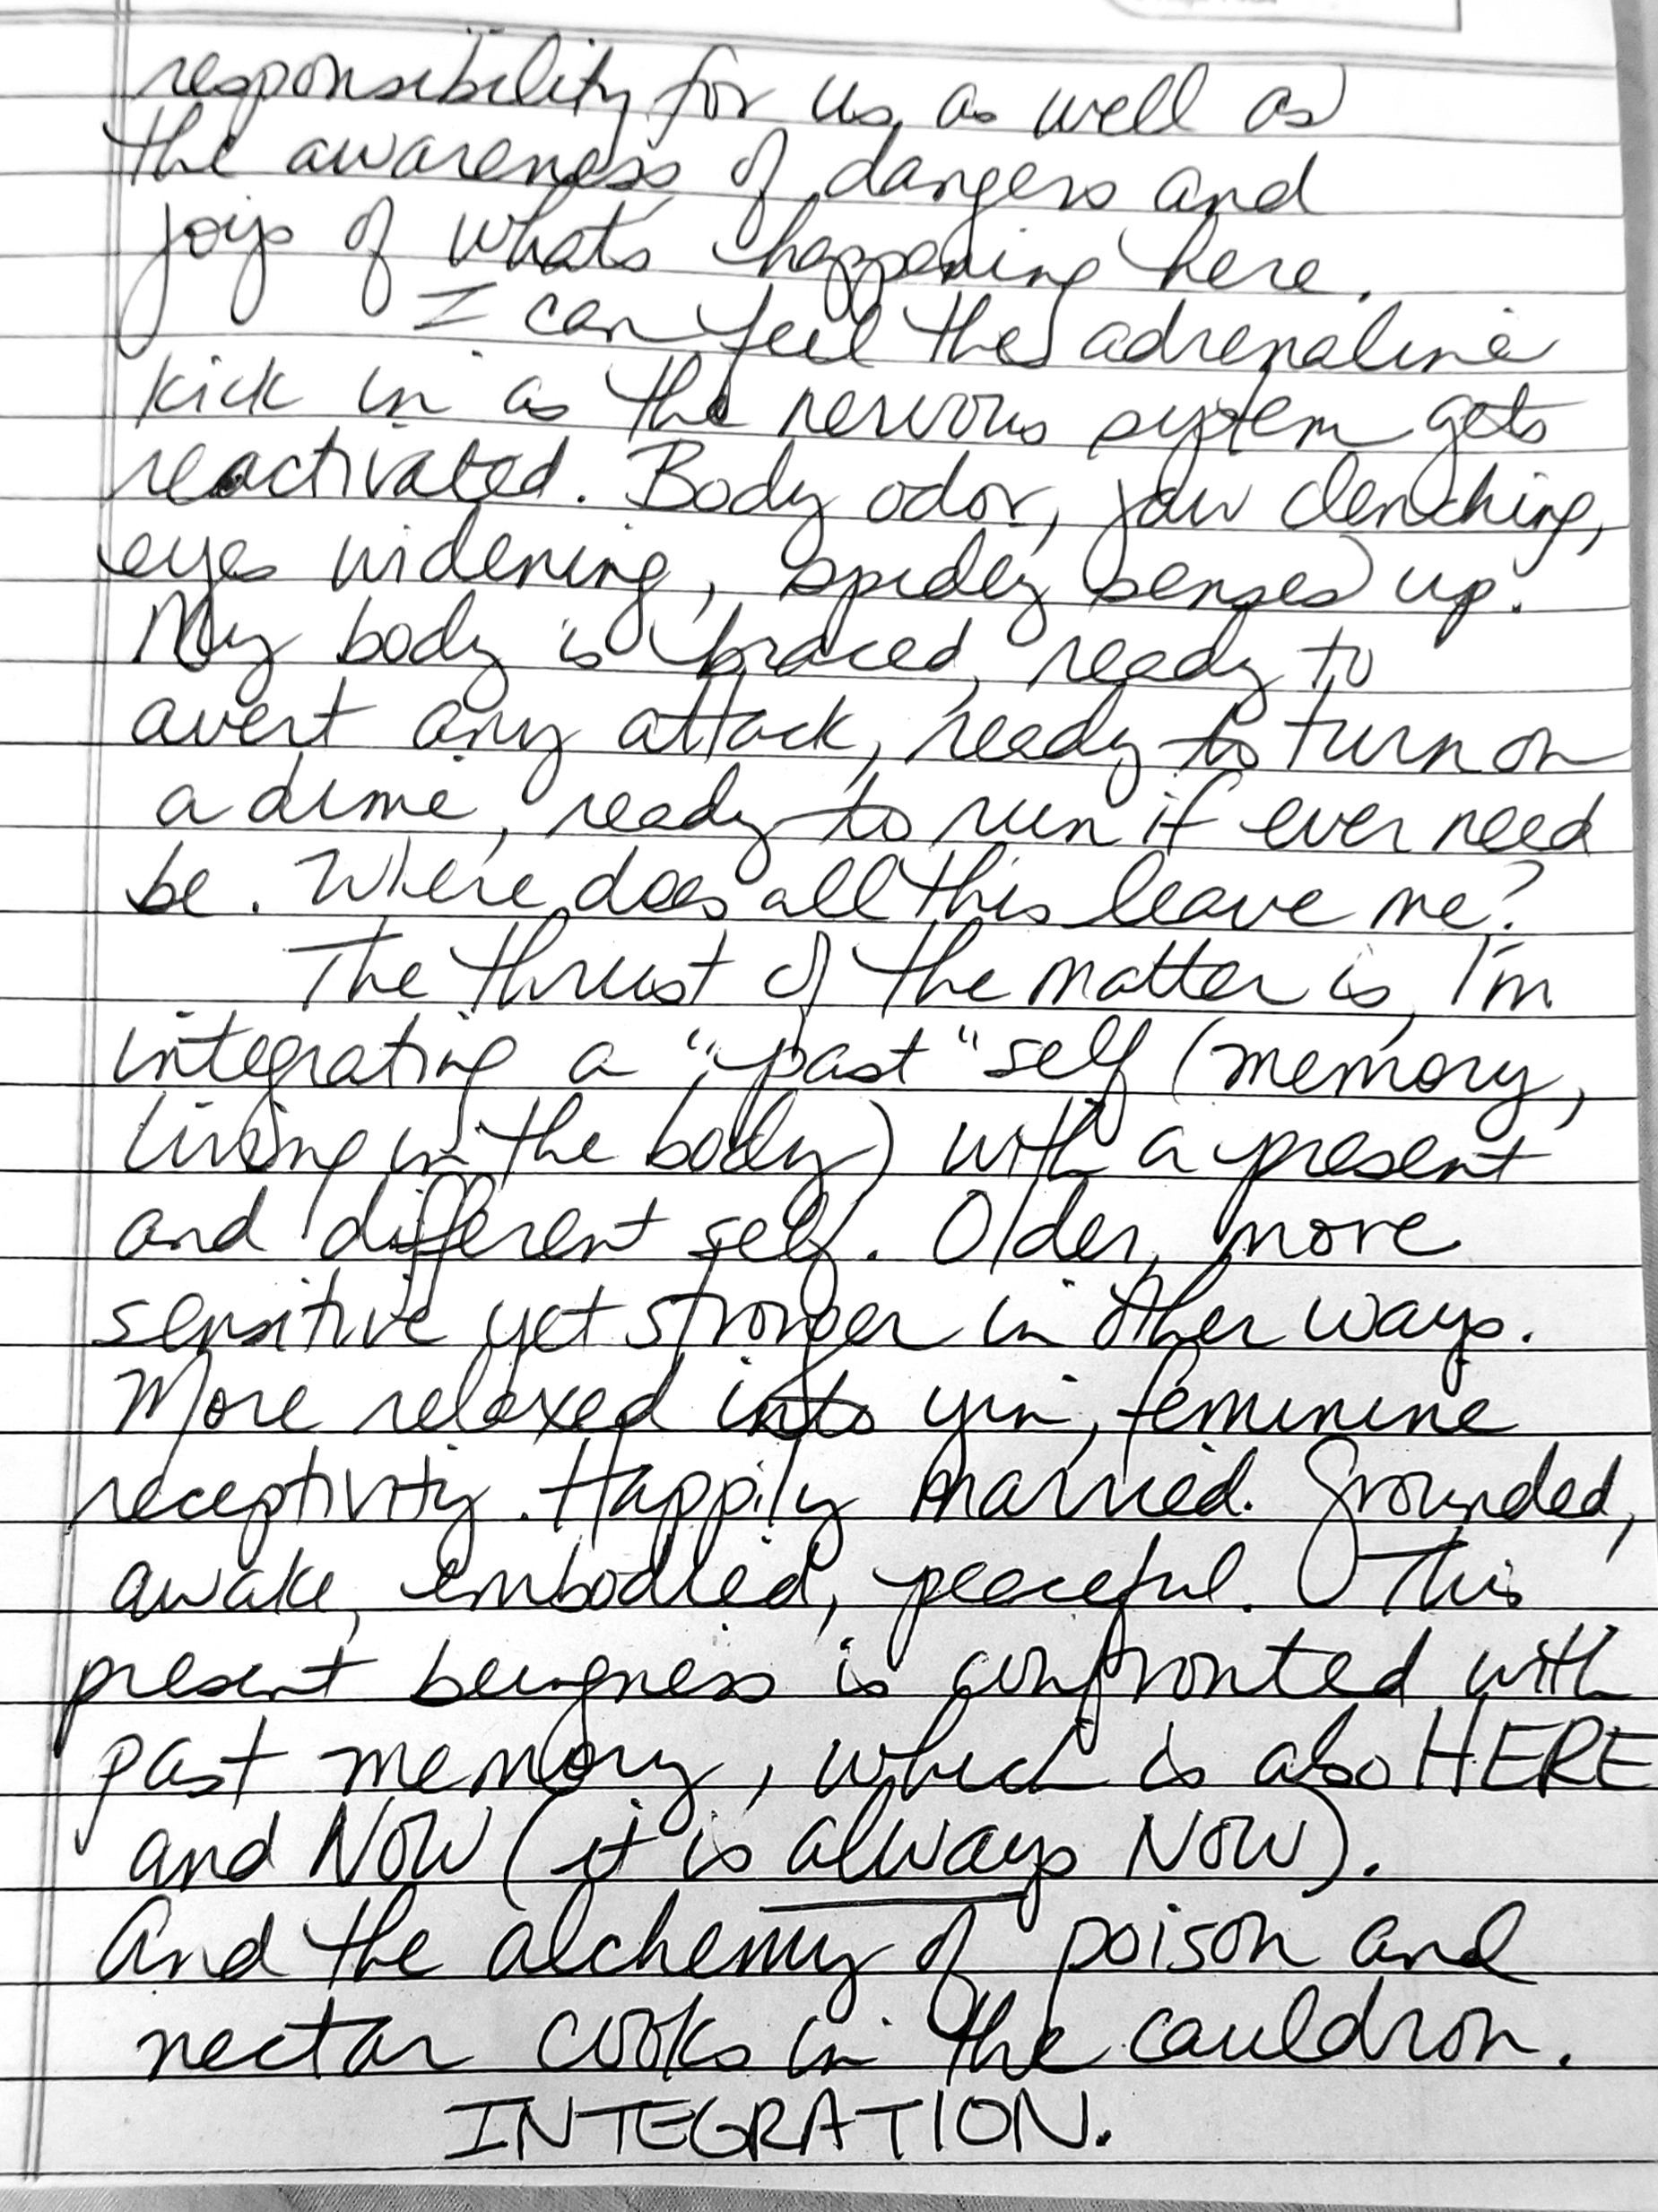 responsibility for us, as well as
the awareness of dangers and
joys of what's happening here.
I can feel the adrenaline
kick in as the nervous system gets
reactivated. Body odor, jaw clenching,
eyes widening, spidey senses up.
My body is braced, ready to
avert any attack, ready to turn on
a dime, ready to run if ever need
be. Where does all this leave me?
The thrust of the matter is, I'm
integrating a "past" self (memory,
living in the body) with a present
and different self. Older, more
sensitive yet stronger in other ways.
More relaxed into yin, feminine
receptivity. Happily married. Grounded,
awake, embodied, peaceful. This
present beingness is confronted with
past memory, which is also HERE
and NOW (it is always NOW).
And the alchemy of poison and
nectar cooks in the cauldron.
INTEGRATION.